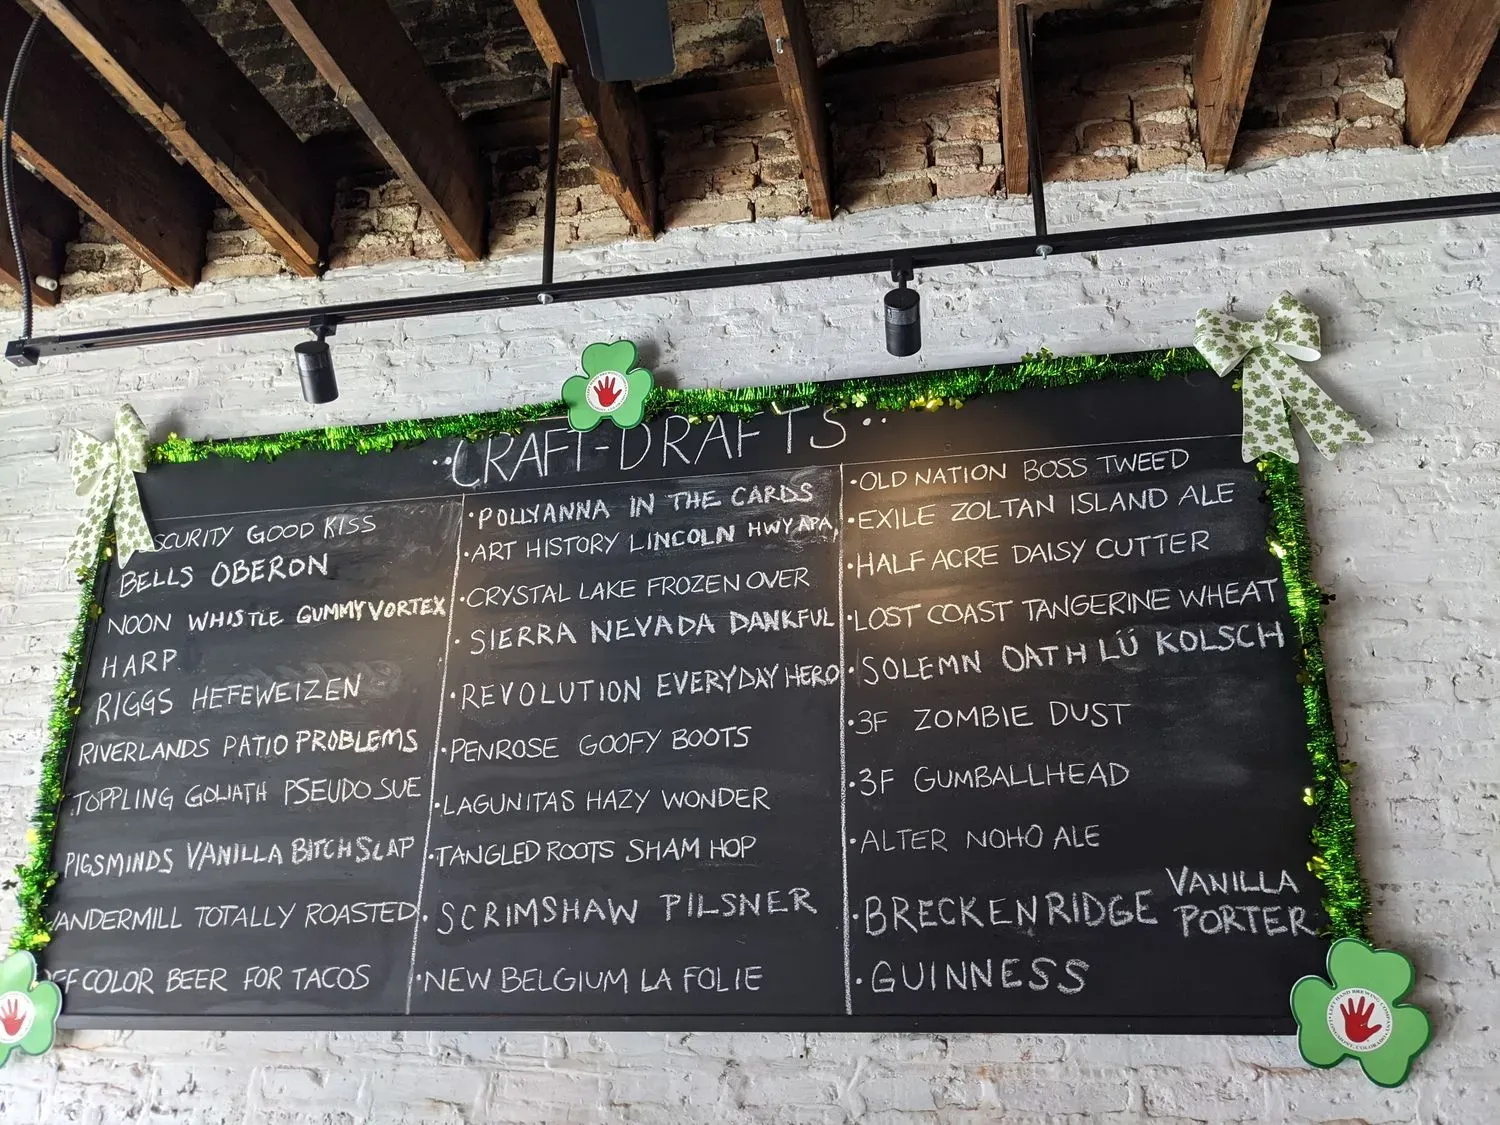 ··CRAFT-DRAFTS··
SCURITY GOOD KISS
BELLS OBERON
NOON WHISTLE GUMMY VORTEX
HARP
RIGGS HEFEWEIZEN
RIVERLANDS PATIO PROBLEMS
TOPPLING GOLIATH PSEUDO SUE
PIGSMINDS VANILLA BITCHSLAP
VANDERMILL TOTALLY ROASTED
FF COLOR BEER FOR TACOS
·POLLYANNA IN THE CARDS
·ART HISTORY LINCOLN HWY APA,
·CRYSTAL LAKE FROZEN OVER
·SIERRA NEVADA DANKFUL
·REVOLUTION EVERYDAY HERO
·PENROSE GOOFY BOOTS
·LAGUNITAS HAZY WONDER
·TANGLED ROOTS SHAM HOP
·SCRIMSHAW PILSNER
·NEW BELGIUM LA FOLIE
·OLD NATION BOSS TWEED
·EXILE ZOLTAN ISLAND ALE
·HALF ACRE DAISY CUTTER
·LOST COAST TANGERINE WHEAT
·SOLEMN OATH LÜ KOLSCH
·3F ZOMBIE DUST
·3F GUMBALLHEAD
·ALTER NOHO ALE
·BRECKENRIDGE VANILLA PORTER
·GUINNESS
LEFT HAND BREWING COMPANY
LONGMONT, COLORADO